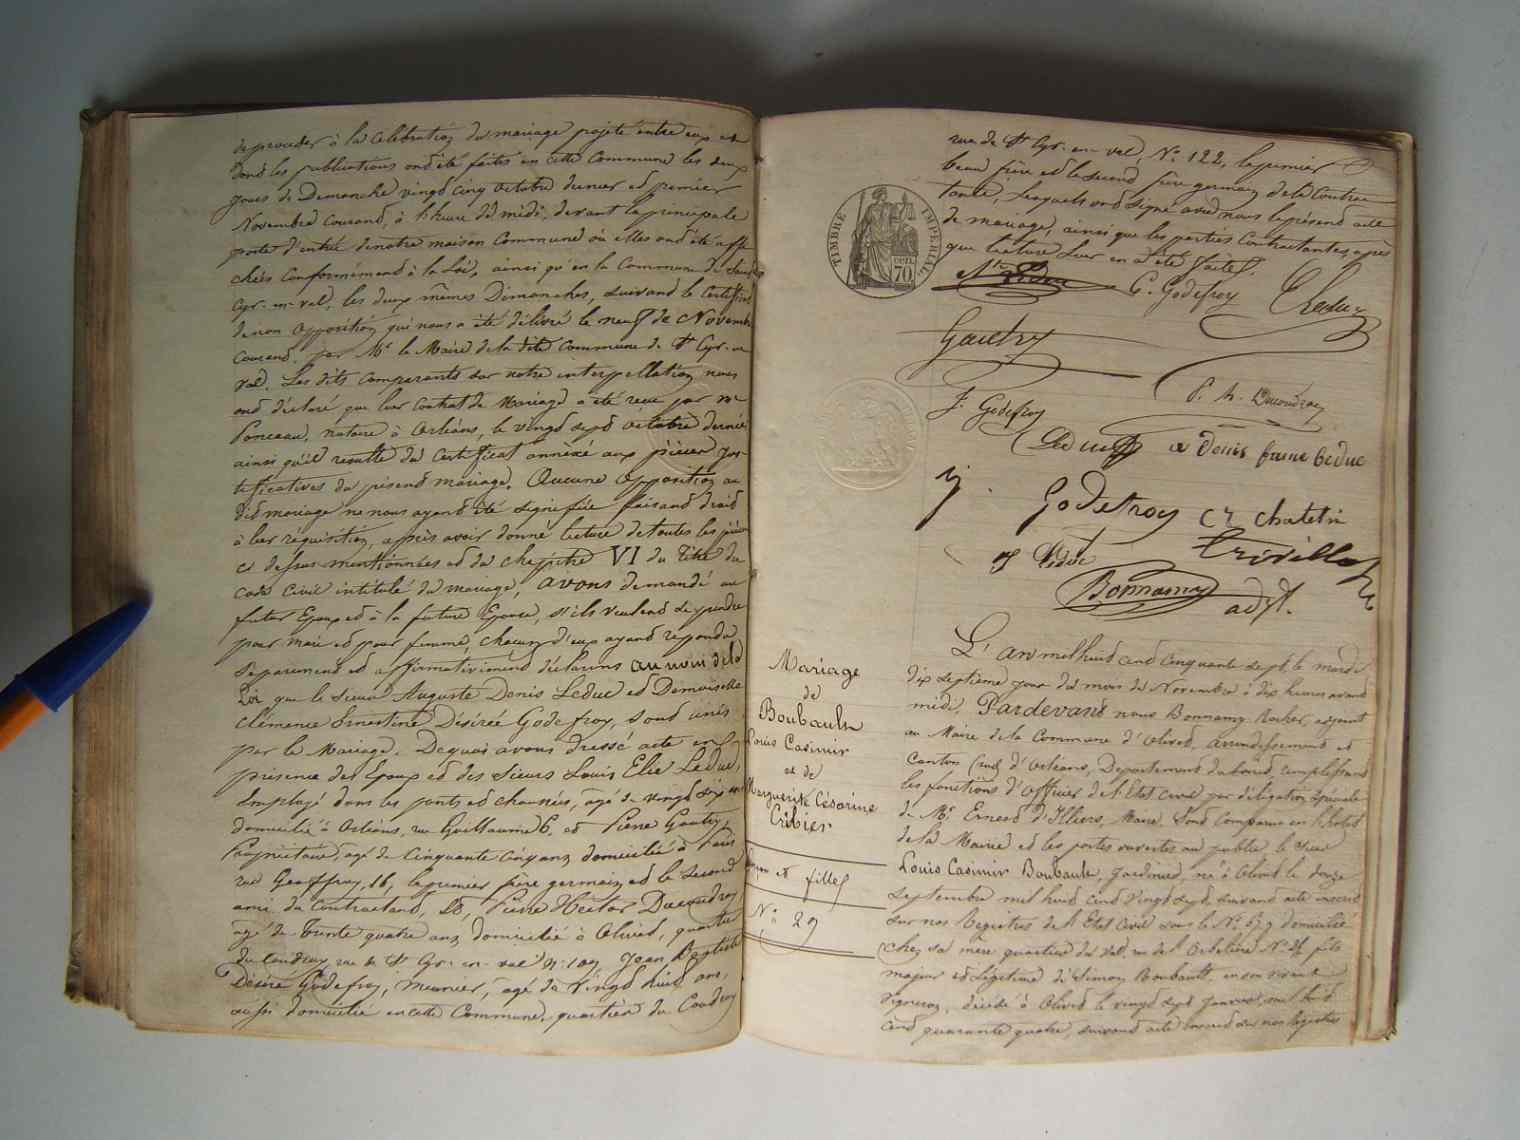 de procéder à la célébration du mariage projeté entre eux et
dont les publications ont été faites en cette Commune les deux
jours de Dimanche vingt cinq Octobre dernier et premier
Novembre courant, à l'heure de midi, devant la principale
porte d'entrée de notre maison Commune où elles ont été affi
chées conformément à la Loi, ainsi qu'en la Commune de Saint
Cyr-en-val, les deux mêmes Dimanches, suivant le Certificat
de non opposition qui nous a été délivré le neuf de Novembre
courant par Mr le Maire de la dite commune de St Cyr-en
val. Les dits comparants sur notre interpellation nous
ont déclaré que leur contrat de Mariage a été reçu par Me
Ponceau, notaire à Orléans, le vingt sept octobre dernier
ainsi qu'il résulte du certificat annexé aux pièces jus-
tificatives du présent mariage. Aucune opposition au
dit mariage ne nous ayant été signifiée faisant droit
à leur réquisition, après avoir donné lecture de toutes les pièces
ci dessus mentionnées et du chapitre VI du Titre du
code civil intitulé du mariage, avons demandé au
futur Epoux et à la future Epouse, s'ils veulent se prendre
pour mari et pour femme, chacun d'eux ayant répondu
séparément et affirmativement déclarons au nom de la
Loi que le sieur Auguste Denis Leduc et Demoiselle
Clémence Ernestine Désirée Godefroy, sont unis
par le Mariage. De quoi avons dressé acte en
présence des Epoux et des Sieurs Louis Elie Leduc,
Employé dans les ponts et chaussées, âgé de vingt six ans
domicilié à Orléans, rue Guillaume 6, et Pierre Gautry,
Propriétaire, âgé de Cinquante cinq ans domicilié à Paris
rue Geoffroy, 16, le premier frère germain et le second
ami du Contractant, et, Pierre Hector Ducoudray
âgé de Trente quatre ans domicilié à Olivet, quartier
du Coudray, rue de St Cyr-en-val Jean Baptiste
Désiré Godefroy, meunier, âgé de vingt huit ans,
aussi domicilié en cette Commune, quartier du Coudray
rue de St Cyr-en-val, No 122, le premier
beau frère et le second frère germain de la Contrac
tante, lesquels ont signé avec nous le présent acte
de mariage, ainsi que les parties Contractantes, après
que lecture leur en a été faite.
TIMBRE IMPERIAL
70
C. Godefroy
Leduc
Gautry
P. h. Ducoudray
J. Godefroy
Leduc
a Denis fame Leduc
J. Godefroy
Chatelin
Leduc
Bonnamy
adjt.
Mariage
de
Boubault
Louis Casimir
et de
Marguerite Césarine
Cribier
garçon et fille
No 29
L'an mil huit cent cinquante sept, le mardi
dix septième jour du mois de Novembre à dix heures avant
midi, Pardevant nous Bonnamy Rocher, adjoint
au Maire de la Commune d'Olivet, arrondissement et
Canton sud d'Orléans, Département du Loiret, remplissant
les fonctions d'officier de l'Etat Civil par délégation spéciale
de Mr Ernest d'Illiers, Maire, sont comparus en l'hôtel
de la Mairie et les portes ouvertes au public le sieur
Louis Casimir Boubault, Jardinier, né à Olivet le douze
septembre mil huit cent vingt sept, suivant acte inscrit
sur nos Registres de l'Etat Civil sous le No 67, domicilié
chez sa mère quartier du Val, rue de fils
majeur et légitime de Simon Boubault, en son vivant
Vigneron, décédé à Olivet le vingt sept Janvier mil huit
cent quarante quatre, suivant acte inscrit sur nos registres